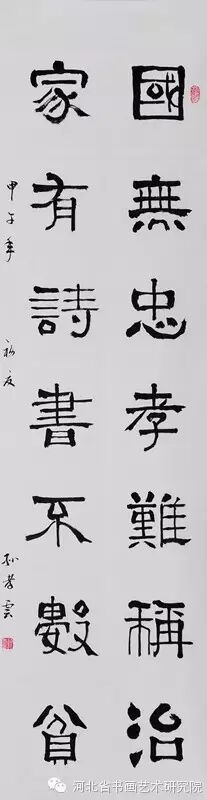 國無忠孝難稱治
家有詩書不數貧
甲午年 初夏 孙孝雲
河北省书画艺术研究院